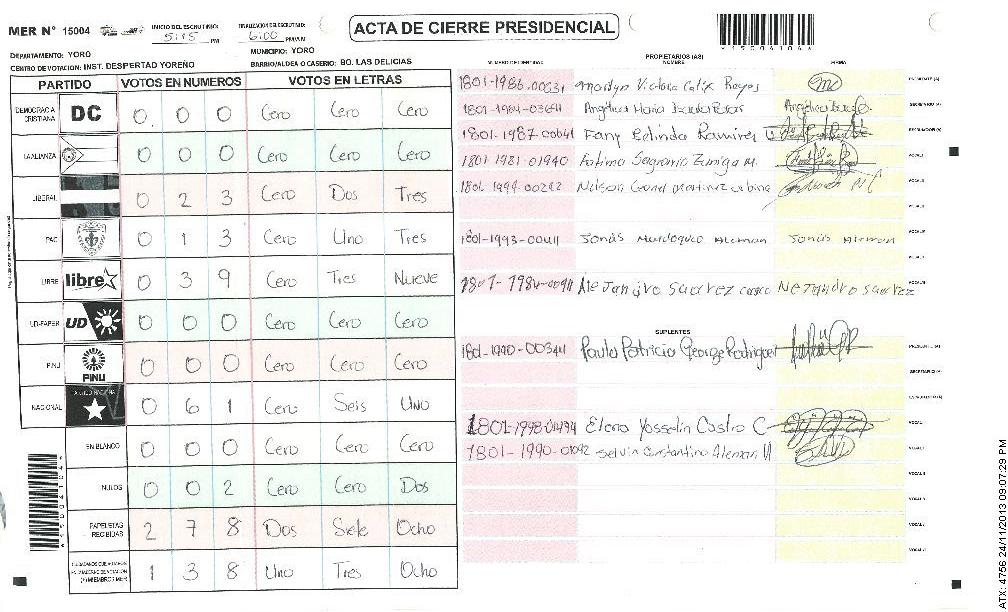 MER N° 15004
INICIO DEL ESCRUTINIO: 5:15 PM
FINALIZACION DEL ESCRUTINIO: 6:00 PM/AM
ACTA DE CIERRE PRESIDENCIAL
DEPARTAMENTO: YORO
MUNICIPIO: YORO
CENTRO DE VOTACION: INST. DESPERTAD YOREÑO
BARRIO/ALDEA O CASERIO: BO. LAS DELICIAS
PARTIDO VOTOS EN NUMEROS VOTOS EN LETRAS
DEMOCRACIA CRISTIANA DC 0 0 0 Cero Cero Cero
LA ALIANZA 0 0 0 Cero Cero Cero
LIBERAL 0 2 3 Cero Dos Tres
PAC 0 1 3 Cero Uno Tres
LIBRE libre 0 3 9 Cero Tres Nueve
UD-FAPER UD 0 0 0 Cero Cero Cero
PINU PINU 0 0 0 Cero Cero Cero
NACIONAL 0 6 1 Cero Seis Uno
EN BLANCO 0 0 0 Cero Cero Cero
NULOS 0 0 2 Cero Cero Dos
PAPELETAS RECIBIDAS 2 7 8 Dos Siete Ocho
1 3 8 Uno Tres Ocho
PROPIETARIOS (AS)
NUMERO DE IDENTIDAD NOMBRE FIRMA
1801-1986-00631 Marilyn Victoria Calix Reyes PRESIDENTE (A)
Angélica María SECRETARIO (A)
1801-1987-00641 Fany Belinda Ramirez ESCRUTADOR (A)
1801 1981-01940 Fatima Sagrario Zuniga M. VOCAL I
Nelson Martinez VOCAL II
VOCAL III
1801-1993-00411 Jonás Mardoqueo Aleman Jonás Aleman VOCAL IV
Alejandro Suarez
SUPLENTES
Paula Patricia George Rodriguez PRESIDENTE (A)
SECRETARIO (A)
ESCRUTADOR (A)
1801-1998-01494 Elena Yosselin Castro C VOCAL I
1801-1990-01092 Selvin Constantino Aleman VOCAL II
ATX: 4756 24/11/2013 09:07:29 PM